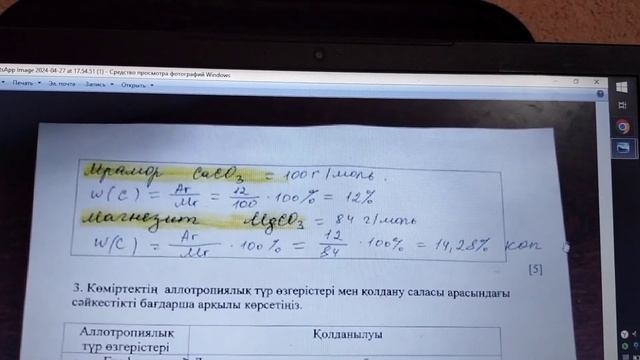 tsApp Image 2024-04-27 at 17.54.51 (1) - Средство просмотра фотографий Windows
Печать Эл. почта Запись Открыть
Мрамор CaCO₃ = 100 г/моль.
W(C) = Ar/Mr = 12/100 · 100% = 12%
Магнезит MgCO₃ = 84 г/моль
W(C) = Ar/Mr · 100% = 12/84 · 100% = 14,28% көп
[5]
3. Көміртектің аллотропиялық түр өзгерістері мен қолдану саласы арасындағы
сәйкестікті бағдарша арқылы көрсетіңіз.
Аллотропиялық Қолданылуы
түр өзгерістері